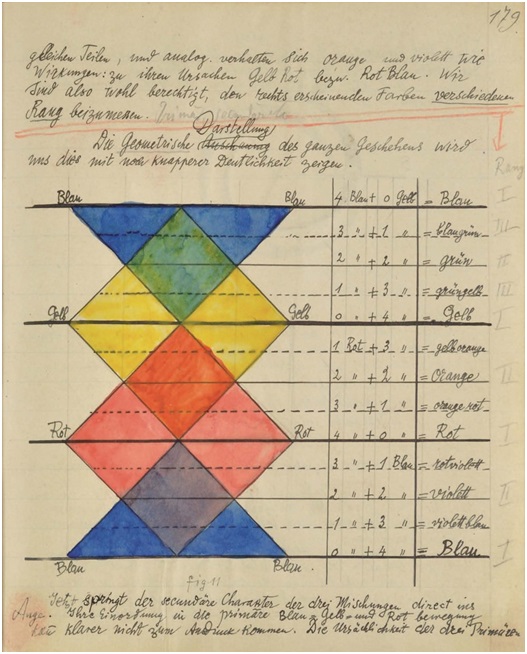 179.
gleichen Teilen, und analog verhalten sich orange und violett wie
Wirkungen: zu ihren Ursachen Gelb Rot bezw. Rot Blau. Wir
sind also wohl berechtigt, den rechts erscheinenden Farben verschiedenen
Rang beizumessen.
Darstellung
Die Geometrische Anschauung des ganzen Geschehens wird
uns dies mit noch knapperer Deutlichkeit zeigen.
Rang
Blau Blau 4 Blau + 0 Gelb = Blau I
3 " + 1 " = blaugrün III
2 " + 2 " = grün II
1 " + 3 " = grüngelb III
Gelb Gelb 0 " + 4 " = Gelb I
1 Rot + 3 " = gelborange
2 " + 2 " = Orange II
3 " + 1 " = orangerot
Rot Rot 4 " + 0 " = Rot I
3 " + 1 Blau = rotviolett
2 " + 2 " = violett II
1 " + 3 " = violettblau
0 " + 4 " = Blau I
Blau Blau.
fig 11
Jetzt springt der secundäre Charakter der drei Mischungen direct ins
Auge. Ihre Einordnung in die primäre Blau- Gelb- und Rot bewegung
kann klarer nicht zum Ausdruck kommen. Die Ursächlichkeit der drei Primären